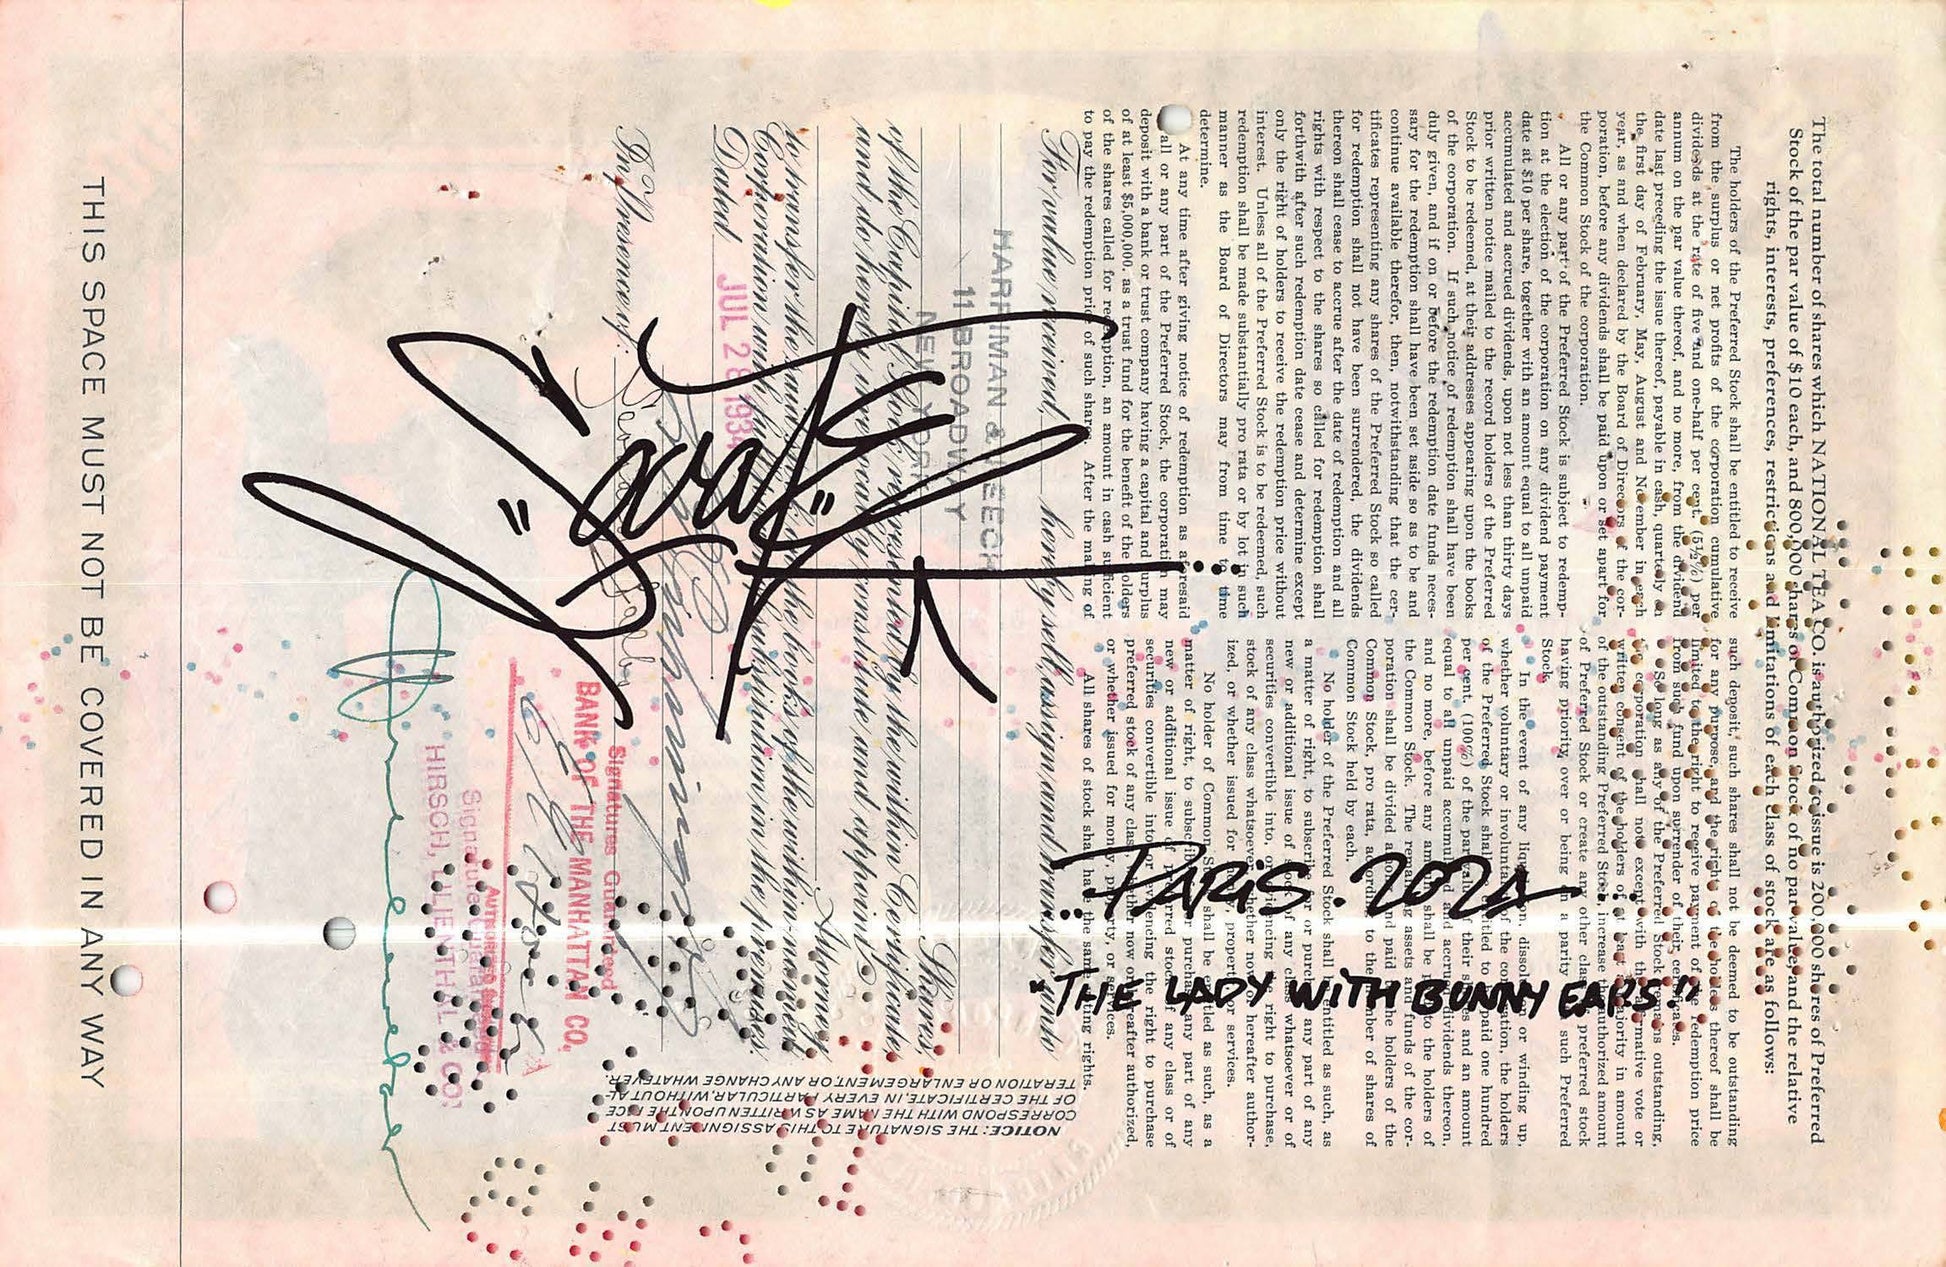 The total number of shares which NATIONAL TEA CO. is authorized to issue is 200,000 shares of Preferred
Stock of the par value of $10 each, and 800,000 shares of Common Stock of no par value, and the relative
rights, interests, preferences, restrictions and limitations of each class of stock are as follows:
The holders of the Preferred Stock shall be entitled to receive
from the surplus or net profits of the corporation cumulative
dividends at the rate of five and one-half per cent. (5½%) per
annum on the par value thereof, and no more, from the dividend
date last preceding the issue thereof, payable in cash, quarterly on
the first day of February, May, August and November in each
year, as and when declared by the Board of Directors of the cor-
poration, before any dividends shall be paid upon or set apart for
the Common Stock of the corporation.
All or any part of the Preferred Stock is subject to redemp-
tion at the election of the corporation on any dividend payment
date at $10 per share, together with an amount equal to all unpaid
accumulated and accrued dividends, upon not less than thirty days
prior written notice mailed to the record holders of the Preferred
Stock to be redeemed, at their addresses appearing upon the books
of the corporation. If such notice of redemption shall have been
duly given, and if on or before the redemption date funds neces-
sary for the redemption shall have been set aside so as to be and
continue available therefor, then, notwithstanding that the cer-
tificates representing any shares of the Preferred Stock so called
for redemption shall not have been surrendered, the dividends
thereon shall cease to accrue after the date of redemption and all
rights with respect to the shares so called for redemption shall
forthwith after such redemption date cease and determine except
only the right of holders to receive the redemption price without
interest. Unless all of the Preferred Stock is to be redeemed, such
redemption shall be made substantially pro rata or by lot in such
manner as the Board of Directors may from time to time
determine.
At any time after giving notice of redemption as aforesaid
all or any part of the Preferred Stock, the corporation may
deposit with a bank or trust company having a capital and surplus
of at least $5,000,000. as a trust fund for the benefit of the holders
of the shares called for redemption, an amount in cash sufficient
to pay the redemption price of such shares. After the making of
such deposit, such shares shall not be deemed to be outstanding
for any purpose, and the rights of the holders thereof shall be
limited to the right to receive payment of the redemption price
from such fund upon surrender of their certificates.
So long as any of the Preferred Stock remains outstanding,
the corporation shall not, except with the affirmative vote or
written consent of the holders of at least a majority in amount
of the outstanding Preferred Stock, increase the authorized amount
of Preferred Stock or create any other class of preferred stock
having priority over or being on a parity with such Preferred
Stock.
In the event of any liquidation, dissolution or winding up,
whether voluntary or involuntary, of the corporation, the holders
of the Preferred Stock shall be entitled to be paid one hundred
per cent. (100%) of the par value of their shares and an amount
equal to all unpaid accumulated and accrued dividends thereon,
and no more, before any amount shall be paid to the holders of
the Common Stock. The remaining assets and funds of the cor-
poration shall be divided among and paid to the holders of the
Common Stock, pro rata, according to the number of shares of
Common Stock held by each.
No holder of the Preferred Stock shall be entitled as such, as
a matter of right, to subscribe for or purchase any part of any
new or additional issue of stock of any class whatsoever or of
securities convertible into, or evidencing the right to purchase,
stock of any class whatsoever, whether now or hereafter author-
ized, or whether issued for money, property or services.
No holder of Common Stock shall be entitled as such, as a
matter of right, to subscribe for or purchase any part of any
new or additional issue of preferred stock of any class or of
securities convertible into or evidencing the right to purchase
preferred stock of any class, whether now or hereafter authorized,
or whether issued for money, property, or services.
All shares of stock shall have the same voting rights.
For value received, hereby sell, assign and transfer unto
HARRIMAN &
11 BROADWAY
NEW YORK
Shares
of the Capital Stock represented by the within Certificate,
and do hereby irrevocably constitute and appoint
Attorney
to transfer the said on the books of the within named
Corporation with full power of substitution in the premises.
Dated JUL 28 1934
In Presence of:
NOTICE: THE SIGNATURE TO THIS ASSIGNMENT MUST
CORRESPOND WITH THE NAME AS WRITTEN UPON THE FACE
OF THE CERTIFICATE, IN EVERY PARTICULAR, WITHOUT AL-
TERATION OR ENLARGEMENT, OR ANY CHANGE WHATEVER.
Signatures Guaranteed
BANK OF THE MANHATTAN CO.
AUTHORIZED
Signature Guaranteed
HIRSCH, LILIENTHAL & CO.
THIS SPACE MUST NOT BE COVERED IN ANY WAY
PARIS. 2024
"THE LADY WITH BUNNY EARS."